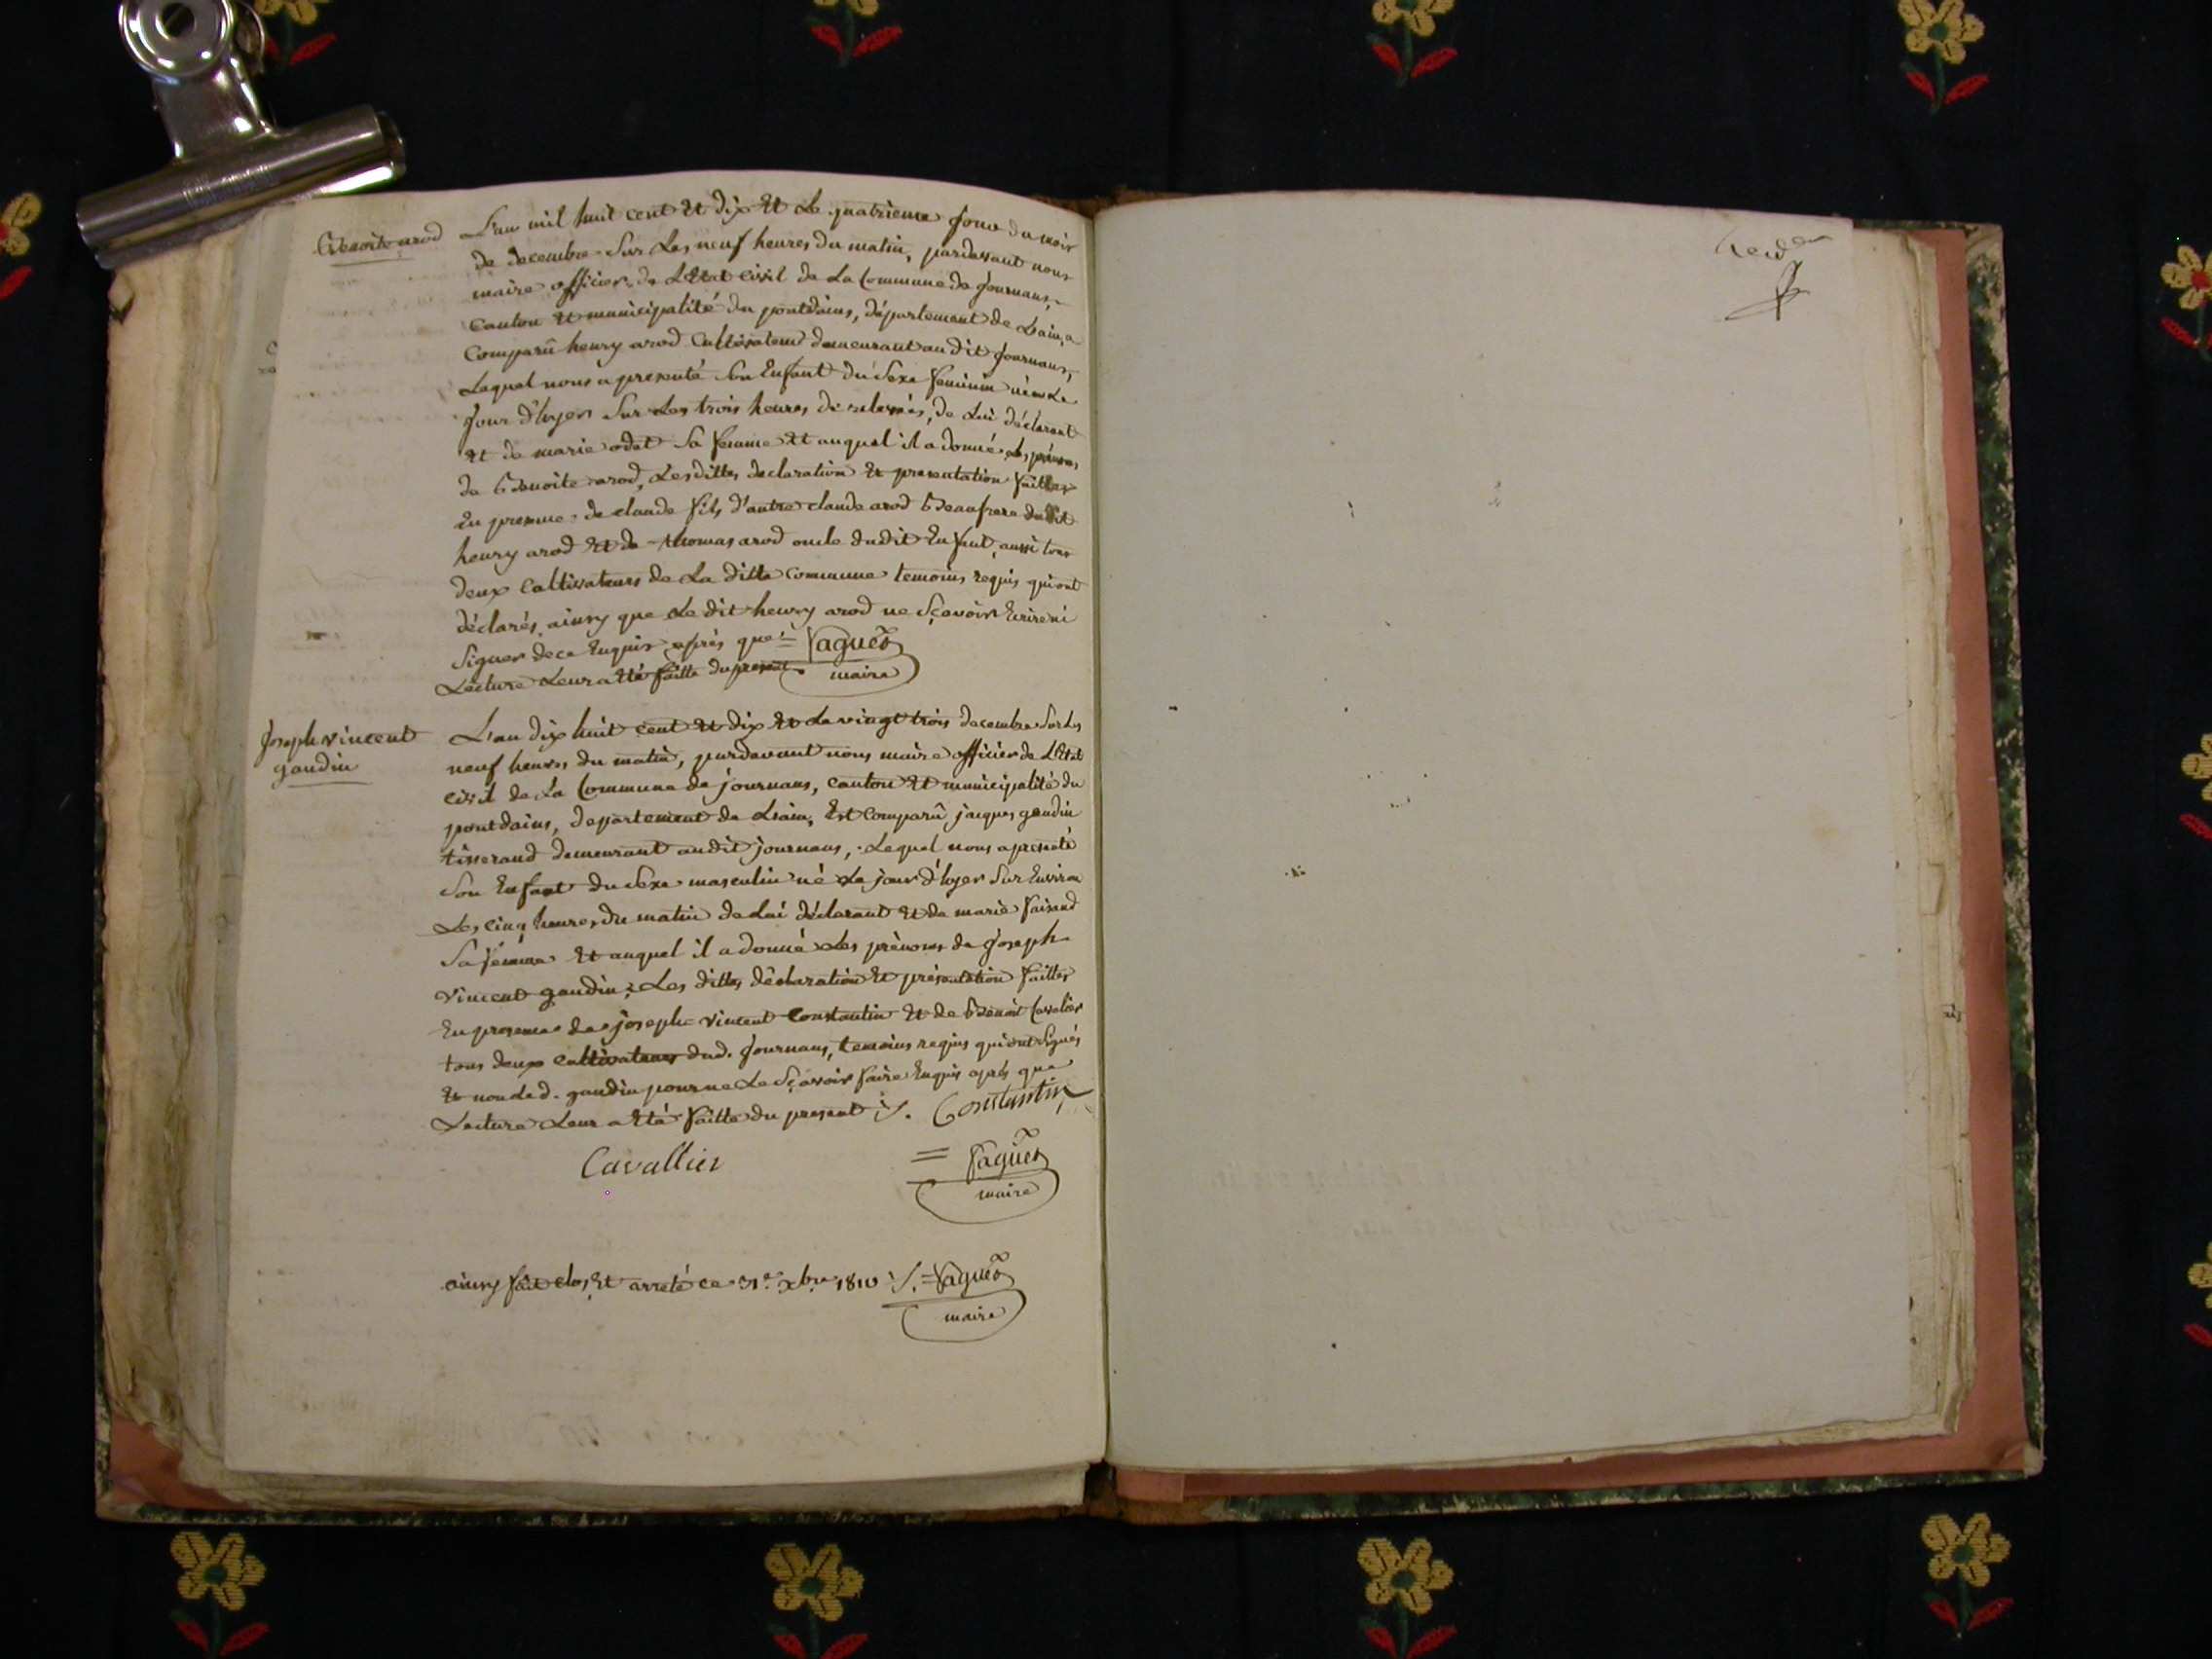 Benoite arod
L'an mil huit cent Et dix Et Le quatrieme Jour du mois
de decembre Sur Les neuf heures du matin, pardevant nous
maire officier de L'Etat civil de La Commune de Journans,
Canton Et municipalité du pontdains, département de L'ain, a
Comparû henry arod Cultivateur demeurant au dit Journans,
Lequel nous a presenté Son Enfant du Sexe feminin née Le
Jour d'hyer Sur Les trois heures de relevées, de Lui déclarant
Et de marie odet Sa femme Et auquel il a donné Les prénoms
de Benoite arod, Lesdittes declaration Et presentation faittes
En presence de claude fils d'autre claude arod Beaufrere dudit
henry arod Et de thomas arod oncle dudit Enfant, aussi tous
deux Cultivateurs de La ditte Commune temoins requis qui ont
déclarés, ainsy que Le dit henry arod ne Sçavoir Ecrire ni
Signer de ce Enquis après que = Vaguet
Lecture Leur a Eté faitte du present maire
Joseph vincent
gaudin
L'an dix huit cent Et dix Et Le vingt trois decembre Sur Les
neuf heures du matin, pardevant nous maire officier de L'Etat
civil de La Commune de journans, canton Et municipalité du
pontdains, departement de L'ain, Est Comparû jacques gaudin
tisserand demeurant audit journans, Lequel nous a presenté
Son Enfant du Sexe masculin né Le jour d'hyer Sur Environ
Les cinq heures du matin de Lui déclarant Et de marie
Sa femme Et auquel il a donné Les prénoms de Joseph
vincent gaudin; Les dittes déclaration Et présentation faittes
En presence de joseph vincent Constantin Et de Benoit Cavalier
tous deux Cultivateurs dud. Journans, temoins requis qui ont Signés
Et non Led. gaudin pour ne Le Sçavoir faire Enquis après que
Lecture Leur a Eté faitte du present ./. Constantin
Cavallier = Vaguet
maire
ainsy fait clos, Et arreté ce 31.e xbre 1810 ./. = Vaguet
maire